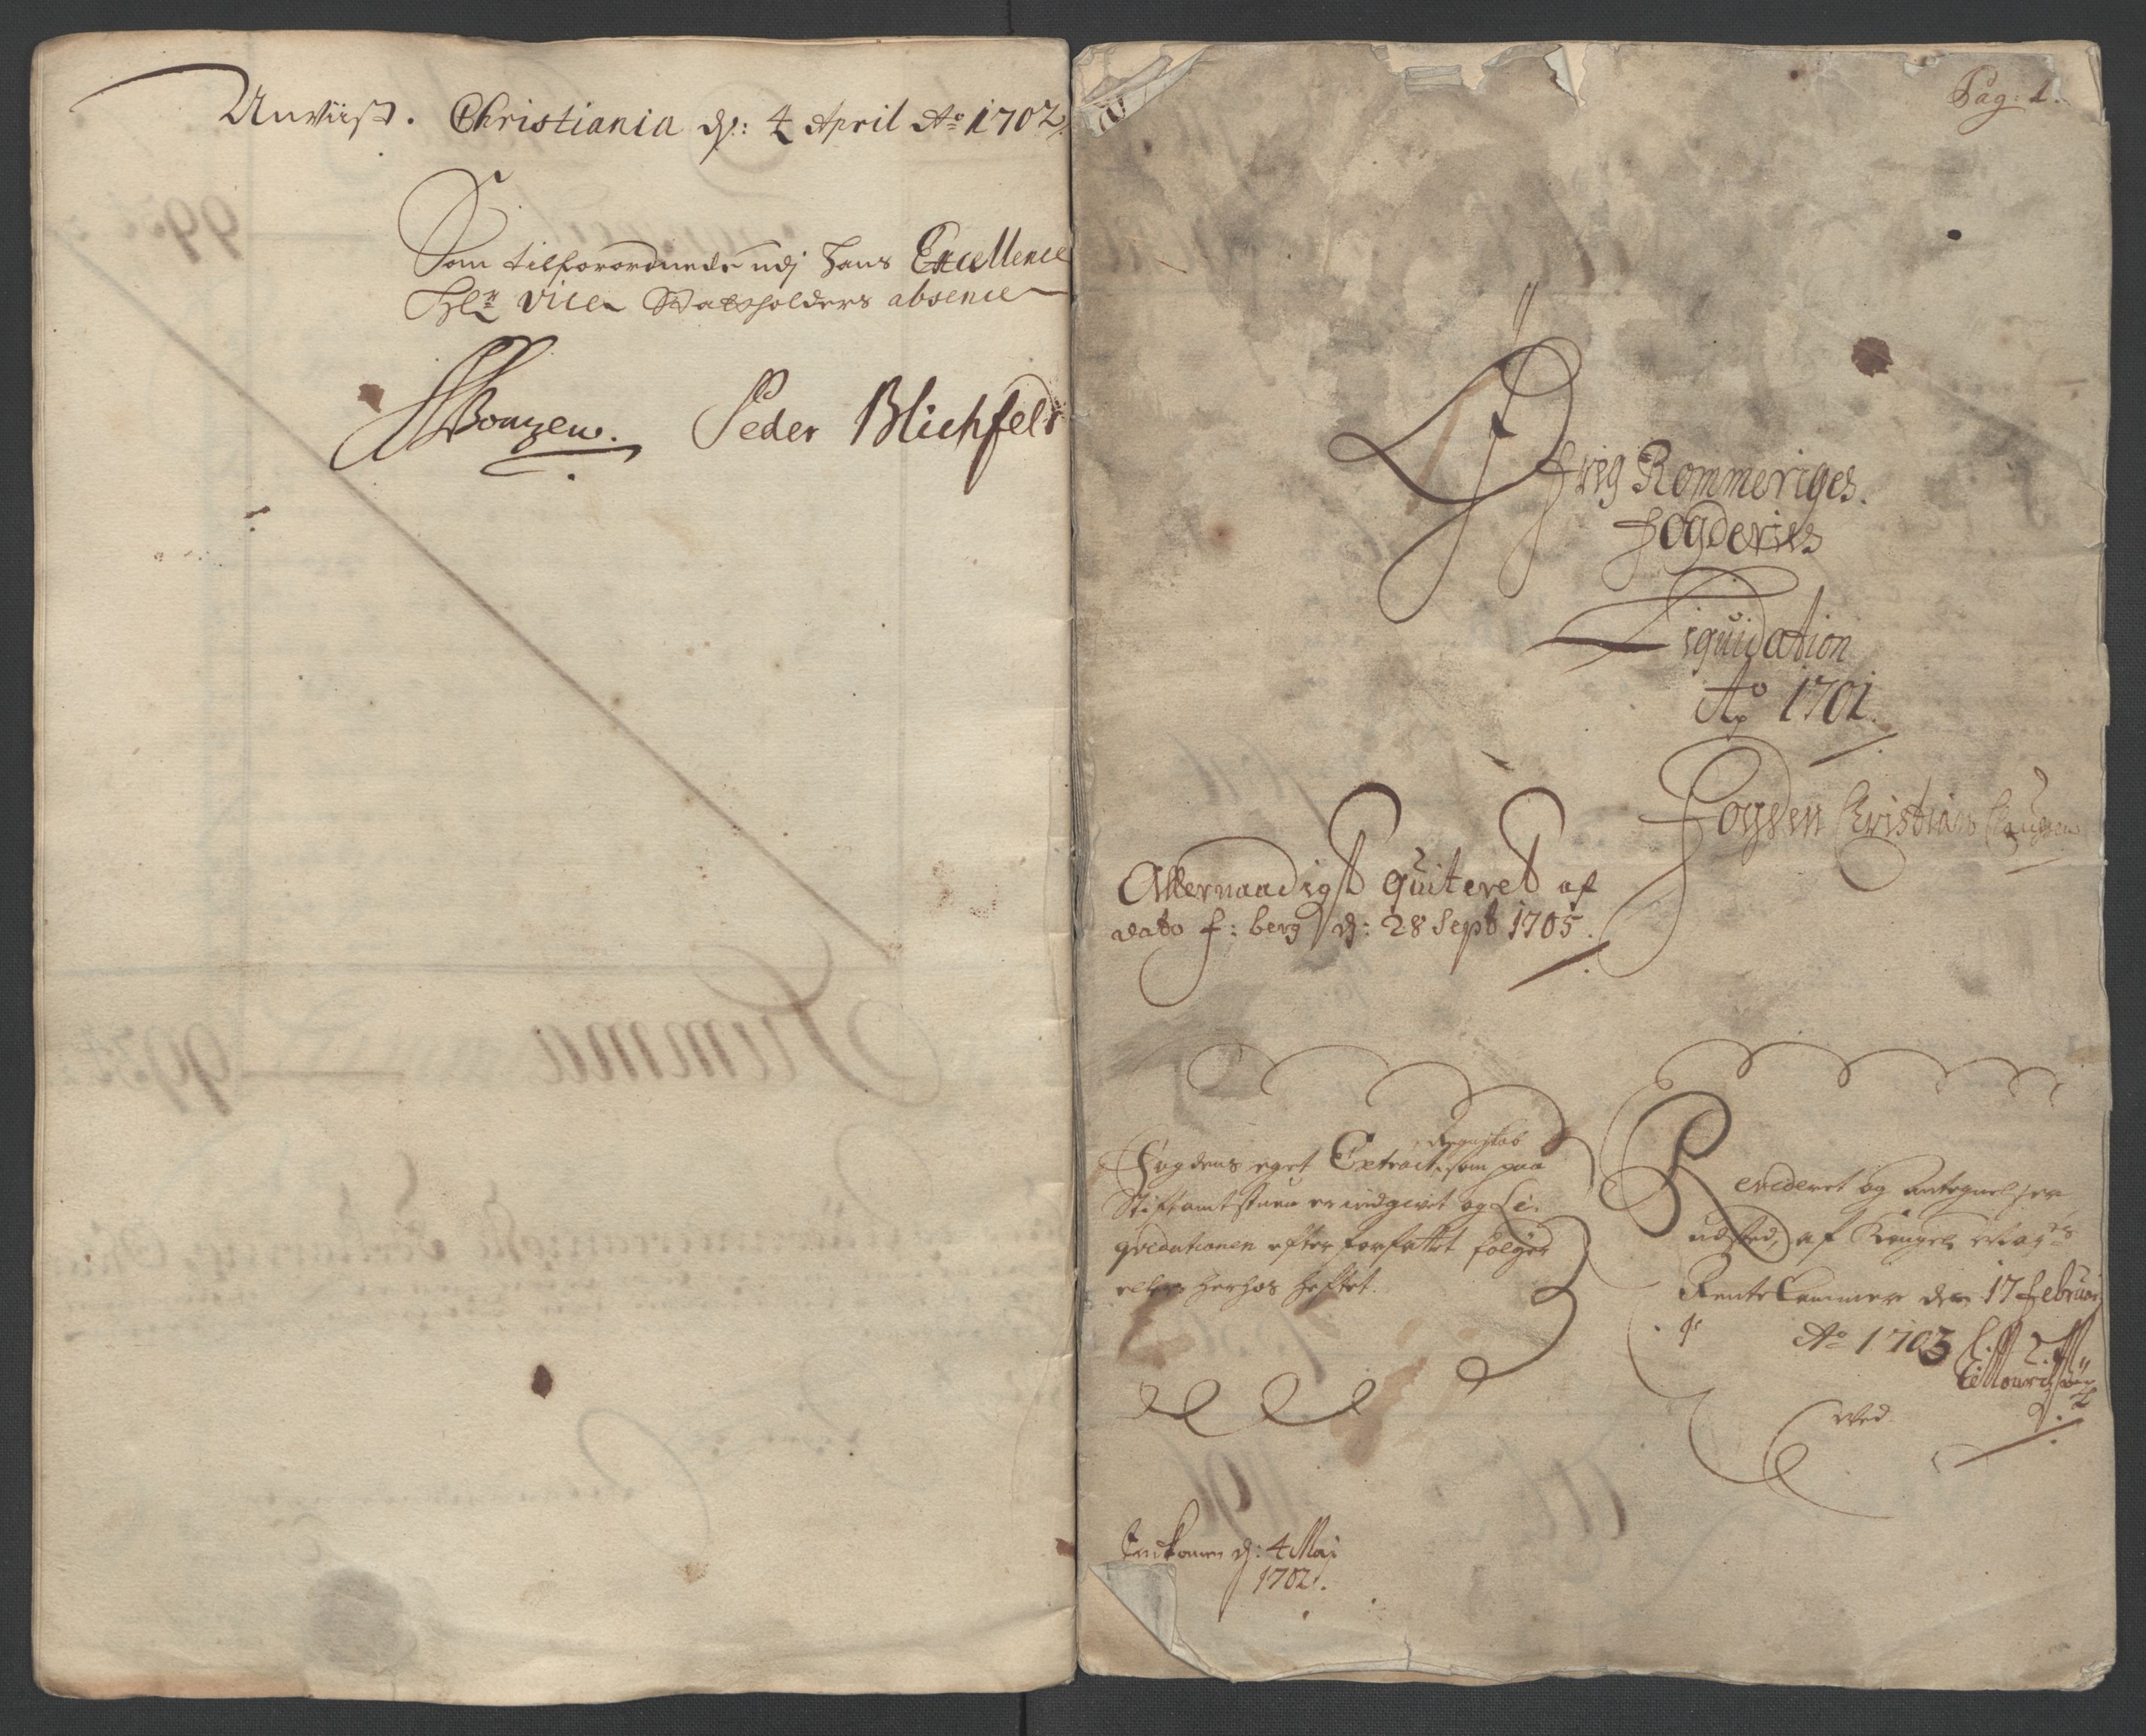 Anviist. Christiania d: 4 April Ao 1702
Som tilforordnede udj Hans Excellence
Hr Vice Statholders absence
Peder Blichfeldt
Pag: 1.
Øfrig Rommeriges
Fogderies
Liquidation
Ao 1701.
Fogden Christian Clausen
Allernaadigst quiteret af
dato f: berg d: 28 Sept 1705.
Regnskab
Fogdens eget Extract, som paa
Stiftamtstuen er indgivet og Li-
qvidationen efter forfattet følger
ellers herhos heftet.
Revideret og Antegnelser
udsted, af Kongel Mayts
RenteCammer den 17 Februar
Ao 1703
ved
Indkomen d: 4 Maj
1702.